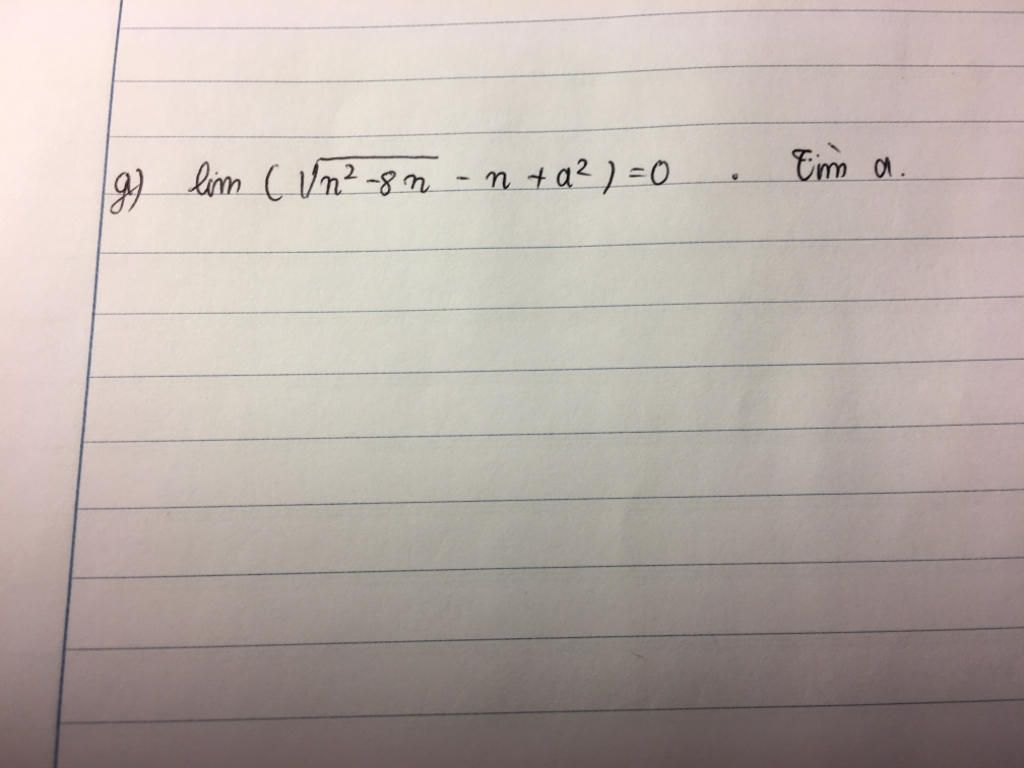 g) lim ( √(n² - 8n) - n + a² ) = 0 . Tìm a.